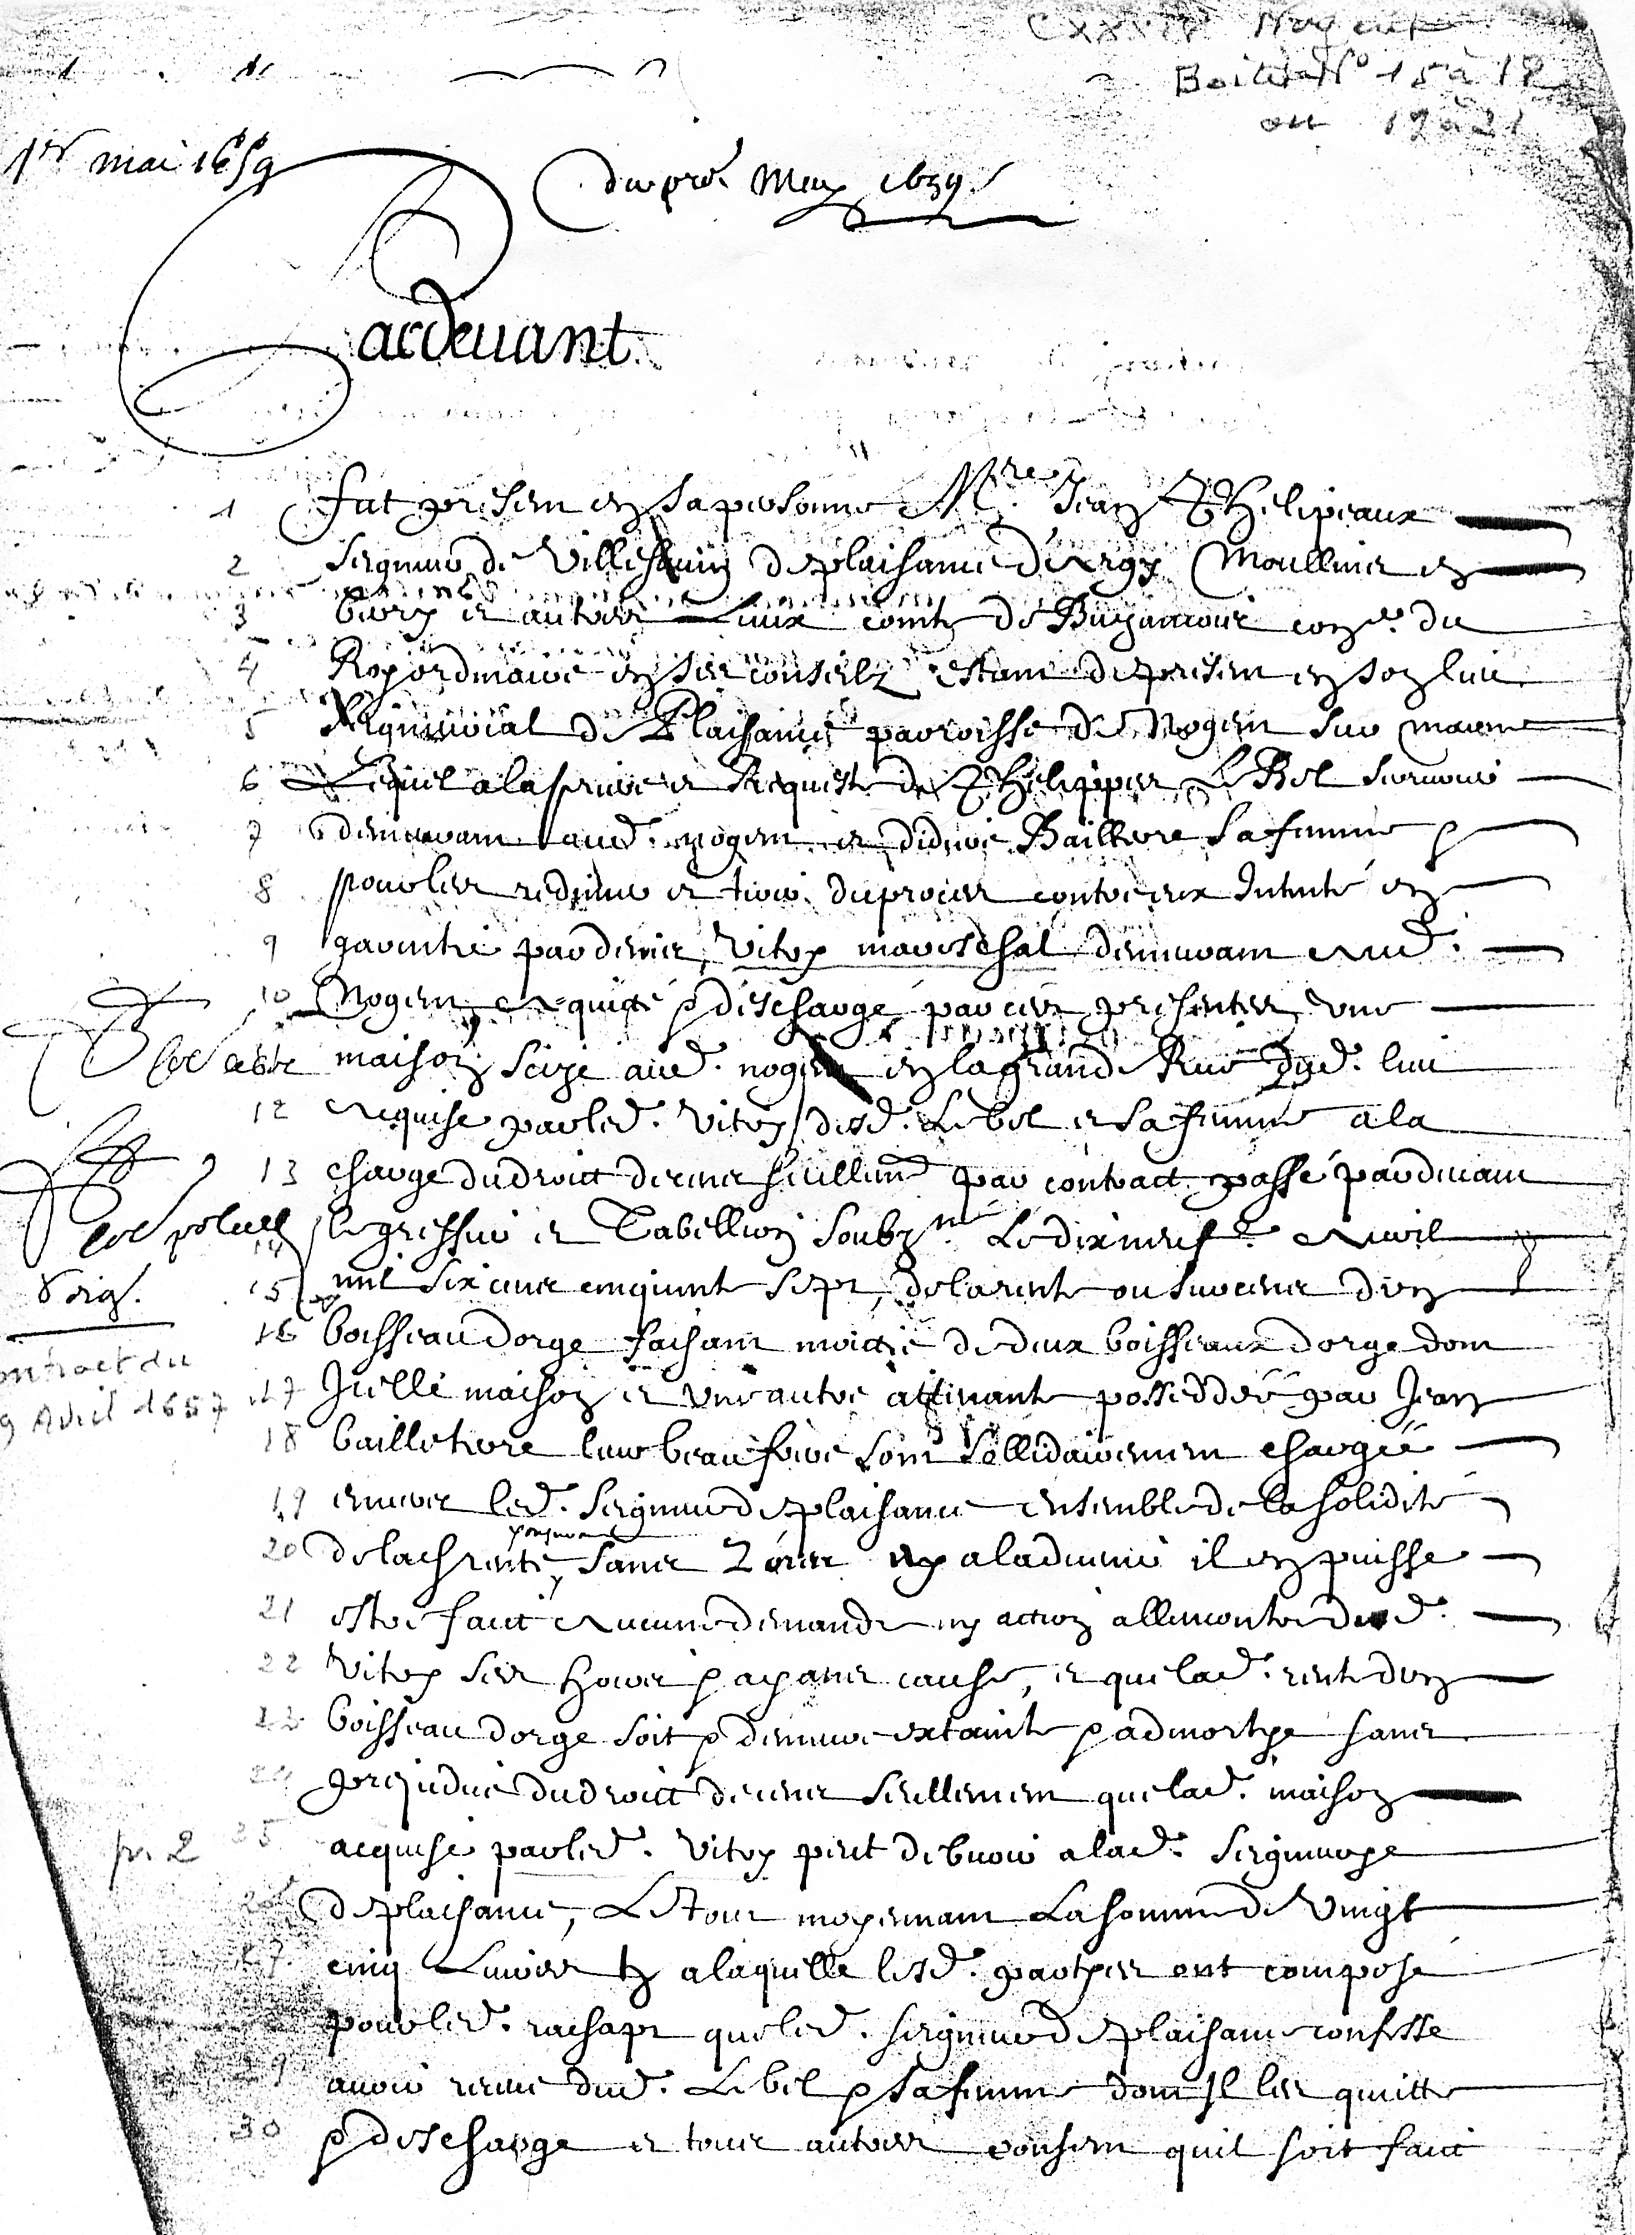 Nogent
Boite N° 15 à 18
ou 19 à 21
1er mai 1659
du pre. May 1659
Pardevant
1 fut present en sa personne Mre. Jean Phelipeaux
2 seigneur de Villesavin de plaisance d'Argy Moullins en
3 berry et autres Lieux comte de Buzancois coner. du
4 Roy ordinaire en ses conseilz estant de present en son lieu
5 seigneurial de Plaisance parroisse de Nogent sur marne
6 Lequel a la priere et Requeste de Phelippes Le Bel
7 demeurant aud. nogent et Bailltere sa femme &
8 pour les redimer et tirer du proces contre eux Intenté en
9 garentie par denis Vitry mareschal demeurant Aud.
10 Nogent Acquité & deschargé par ces presentes une
maison seize aud. nogent en la grande Rue dud. lieu
12 Acquise par led. Vitry desd. Le bel et sa femme a la
13 charge du droict de cens seullemt par contract passé pardevant
14 le greffier et Tabellion soubzne. Le dix neufe. Avril
15 mil six cens cinquante sept, de la rente ou surcens d'un
16 boisseau dorge faisant moictié de deux boisseaux dorge dont
17 Icelle maison et une autre attenante posseddée par Jean
18 bailletere leur beau frere sont sollidairement chargée
19 envers led. seigneur de plaisance ensemble de la solidité
20 de lad rente, sans que ny a ladvenir il en puisse
pour
21 estre faict Aucune demande ny action allencontre dud.
22 Vitry ses hoirs & ayans cause, et que lad. rente d'un
23 boisseau dorge soit & demeure extainte & admortye sans
24 prejudice du droict de cens seullement que lad. maison
25 acquise par led. Vitry peut debvoir a lad. seigneurye
26 de plaisance, Le tout moyennant La somme de Vingt
27 cinq Livres tz a laquelle lesd. partyes ont composé
pour led. rachapt que led. seigneur de plaisance confesse
29 avoir receue dud. Le bel & sa femme dont Il les quitte
30 & descharge et tous autres consent quil soit faict
orig.
contract du
19 Avril 1657
pr. 2